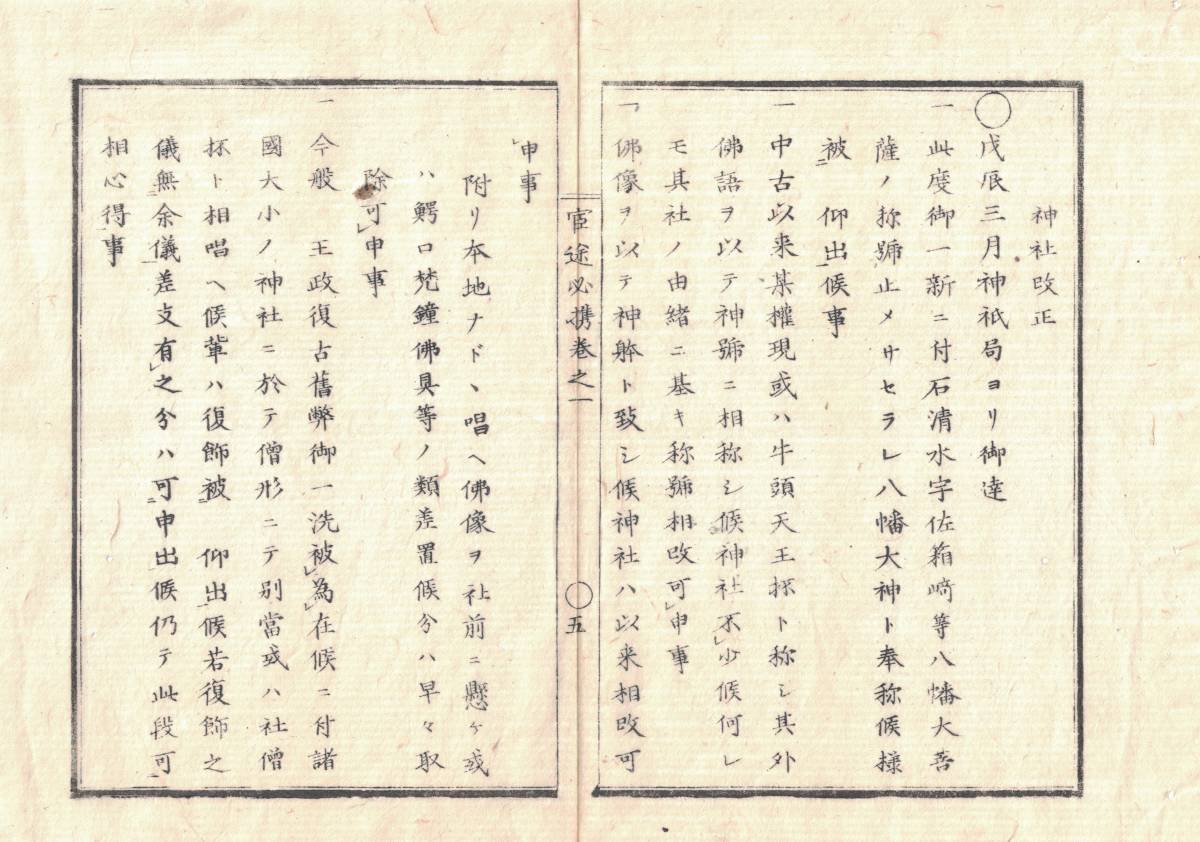 神社改正
◯戊辰三月神祇局ヨリ御達
一此度御一新ニ付石清水宇佐箱﨑等八幡大菩
薩ノ称號止メサセラレ八幡大神ト奉称候様
被㆓ 仰出㆒候事
一中古以来某權現或ハ牛頭天王抔ト称シ其外
佛語ヲ以テ神號ニ相称シ候神社不㆑少候何レ
モ其社ノ由緒ニ基キ称號相改可㆑申事
一佛像ヲ以テ神躰ト致シ候神社ハ以来相改可
官途必携卷之一 ◯五
㆑申事
附リ本地ナドヽ唱ヘ佛像ヲ社前ニ懸ケ或
ハ鰐口梵鐘佛具等ノ類差置候分ハ早々取
除可㆑申事
一今般 王政復古舊弊御一洗被㆑為㆑在候ニ付諸
國大小ノ神社ニ於テ僧形ニテ別當或ハ社僧
抔ト相唱ヘ候輩ハ復飾被㆓ 仰出㆒候若復飾之
儀無㆓余儀㆒差支有㆑之分ハ可㆓申出㆒候仍テ此段可㆓
相心得㆒事